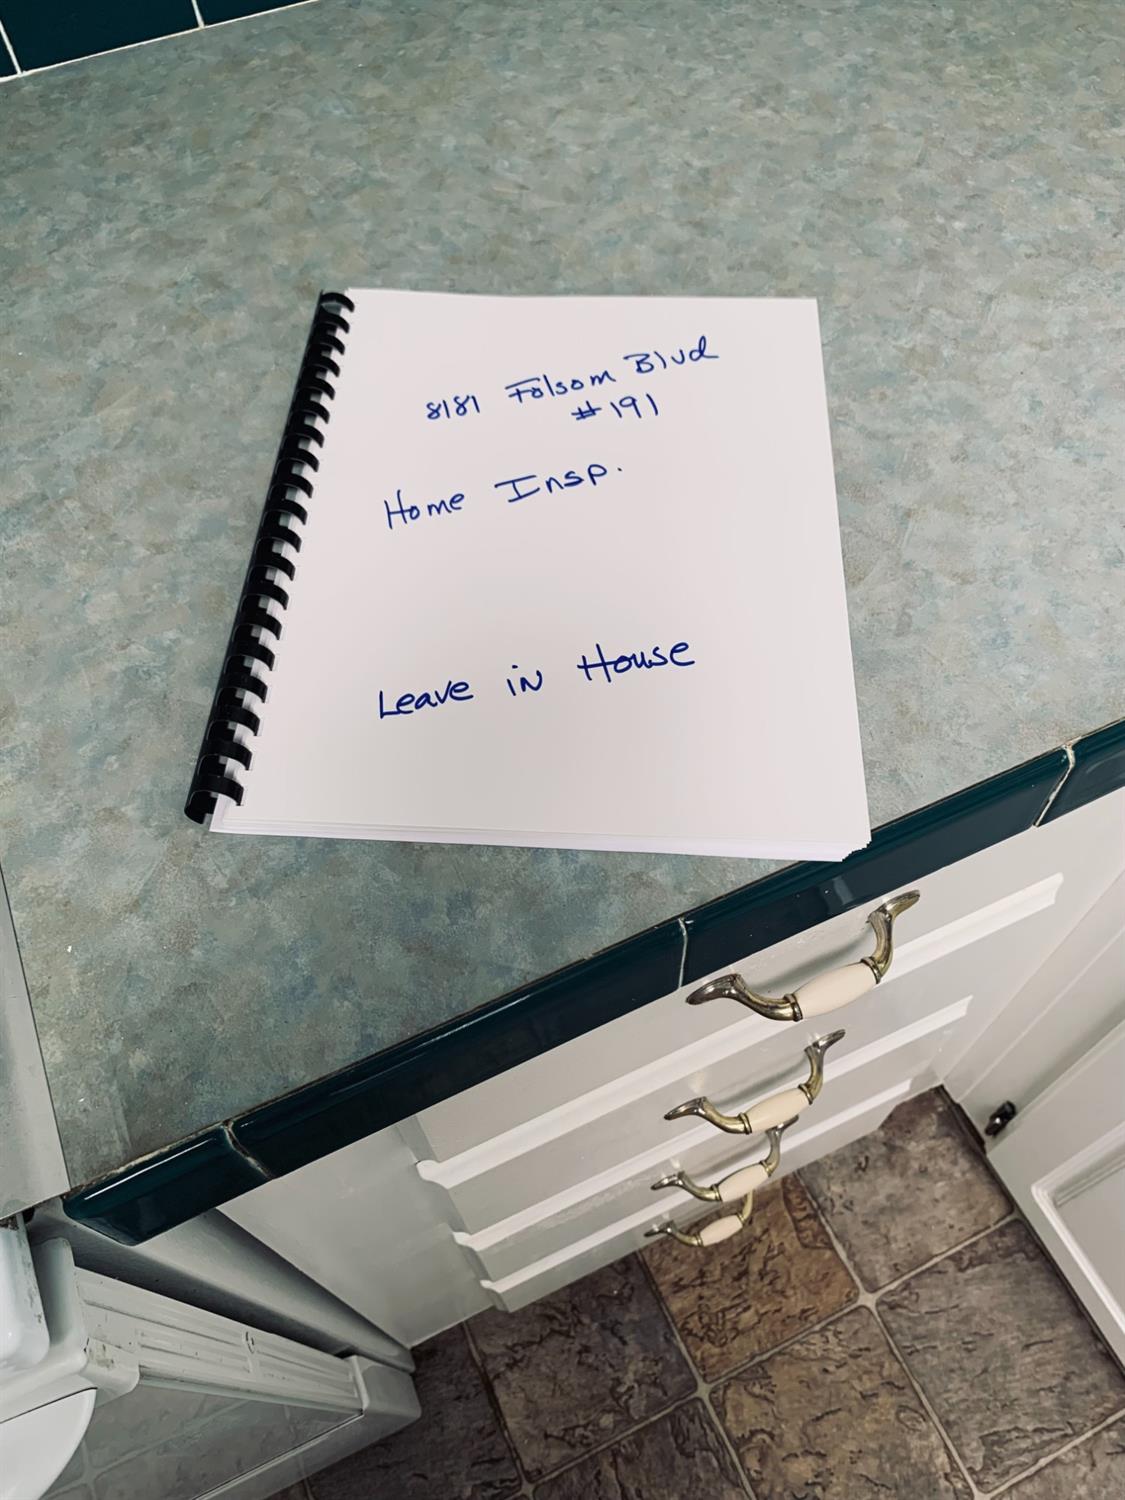 8181 Folsom Blvd
#191
Home Insp.
Leave in House